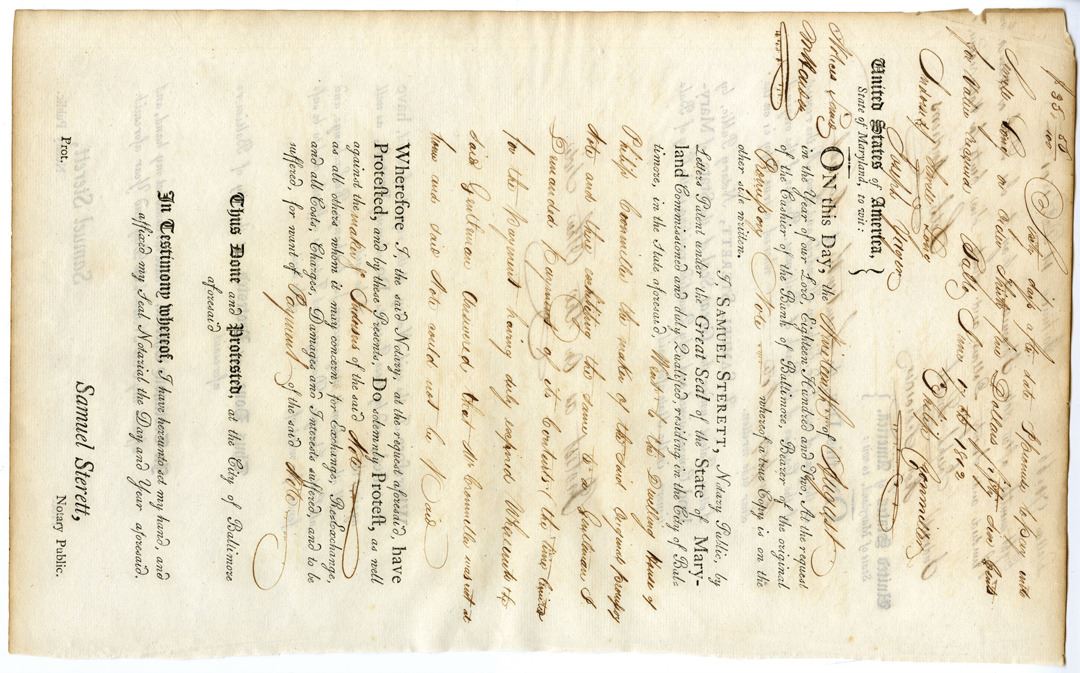 $35 58/100
Sixty Days after date I Promise to Pay unto
Joseph Grover or Order Thirty five Dollars & fifty Eight Cents
for Value Received Balto June 11th 1802
Philip Connelly
Indorsed James Lane
Joseph Grover
United States of America,
State of Maryland, to wit:
ON this Day, the thirteenth of August
in the Year of our Lord Eighteen Hundred and Two, At the request
of the Cashier of the Bank of Baltimore, Bearer of the original
Promissory Note whereof a true Copy is on the
other side written.
I, SAMUEL STERETT, Notary Public, by
Letters Patent under the Great Seal of the State of Mary-
land Commissioned and duly Qualified, residing in the City of Bal-
timore, in the State aforesaid, Went to the Dwelling House of
Philip Connelly the maker of the said Original Promissory
Note and there exhibiting the same to a Gentleman I
Demanded Payment of its Contents (the time limited
for the Payment having duly expired) Whereunto the
said Gentleman Answered, that Mr Connelly was not at
home and said Note could not be Paid
Wherefore I, the said Notary, at the request aforesaid, have
Protested, and by these Presents, Do solemnly Protest, as well
against the maker & Indorsers of the said Note
as all others whom it may concern, for Exchange, Re-Exchange,
and all Costs, Charges, Damages and Interests suffered, and to be
suffered, for want of Payment of the said Note
Thus Done and Protested, at the City of Baltimore
aforesaid
In Testimony whereof, I have hereunto set my hand, and
affixed my Seal Notarial the Day and Year aforesaid.
Samuel Sterett,
Prot. Notary Public.